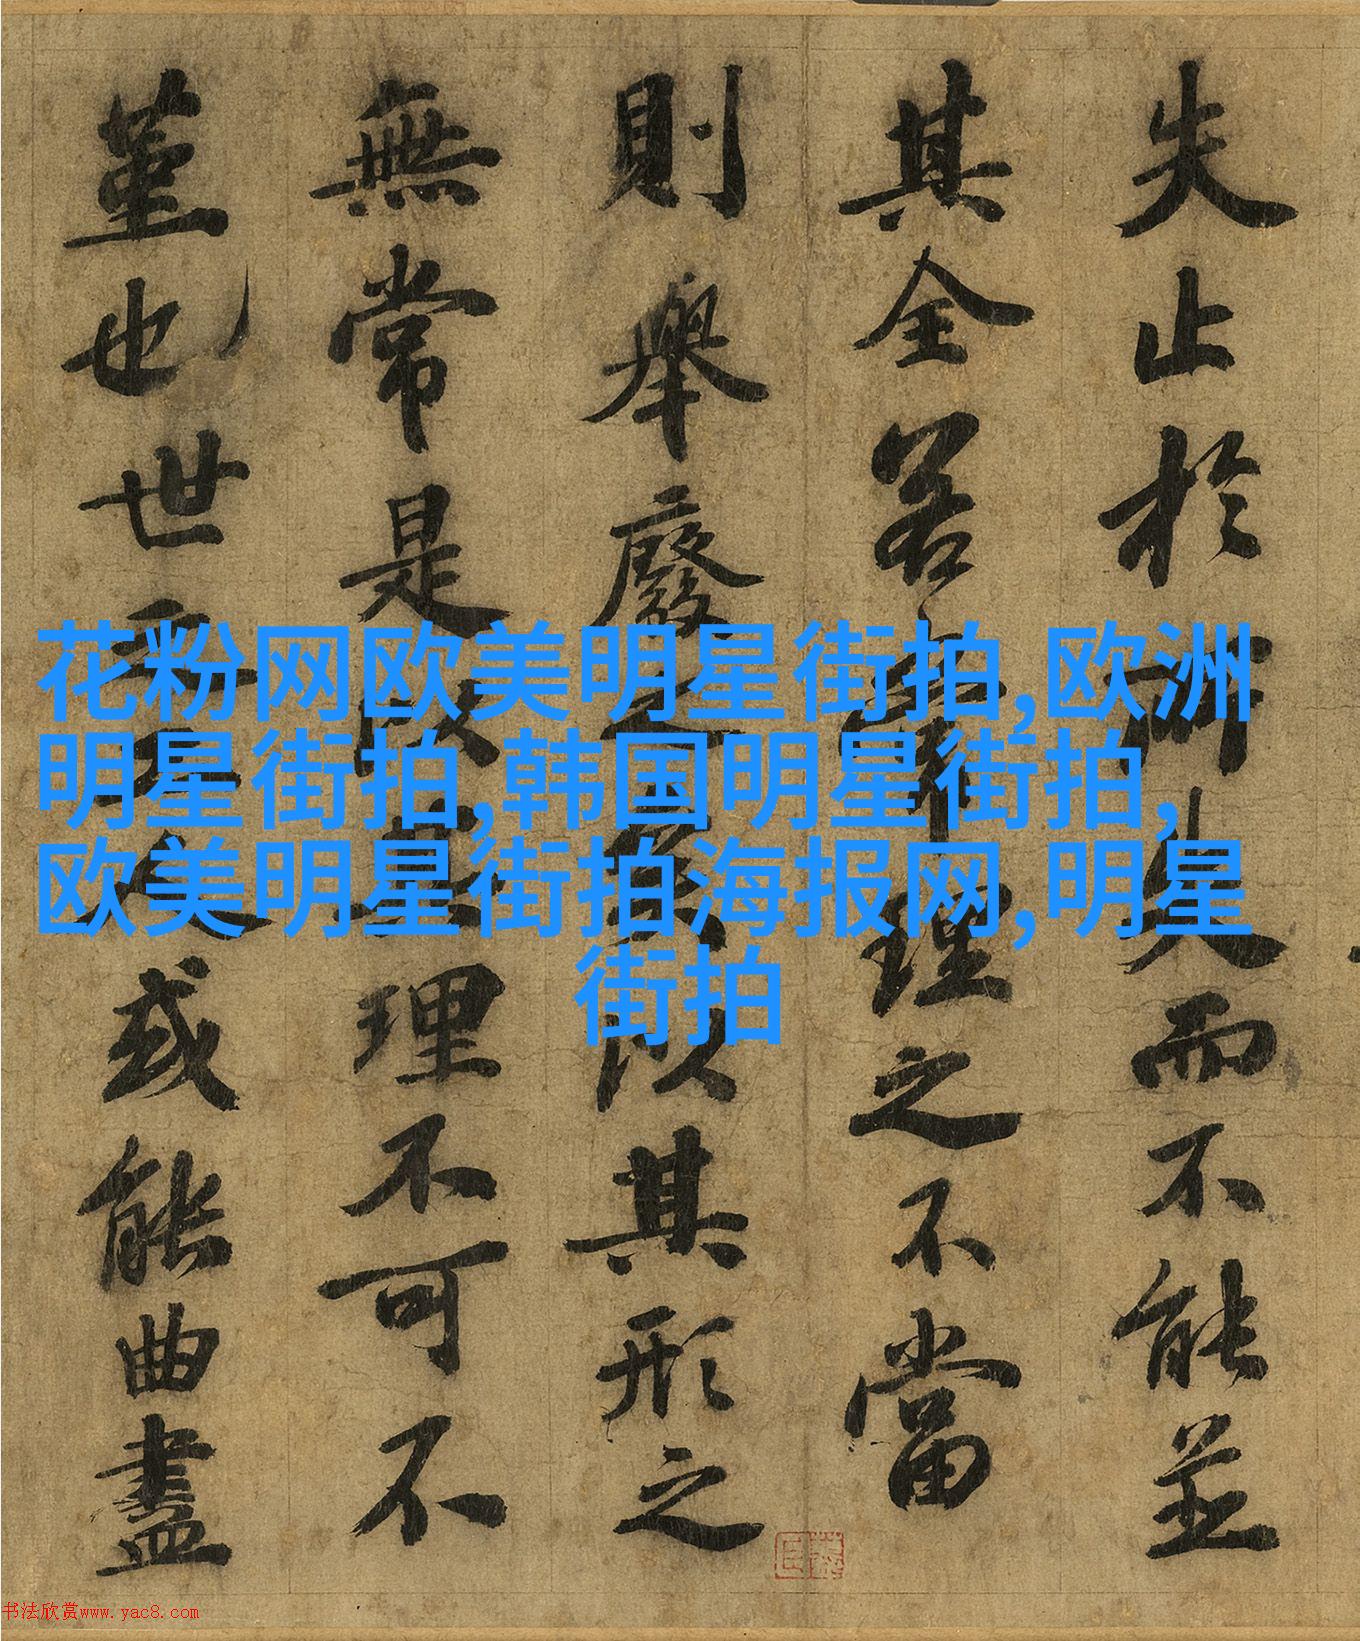 失止於所失而不能並
其全若常理之不當
則舉廢之矣以其形之
無常是以其理不可不
堇也世之工人或能曲盡
花粉网欧美明星街拍,欧洲
明星街拍,韩国明星街拍,
欧美明星街拍海报网,明星
街拍
书法欣赏www.yac8.com